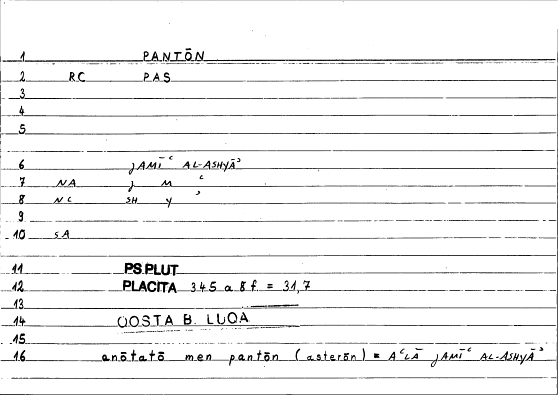 1 PANTŌN
2 RC PAS
3
4
5
6 jAMĪʿ AL-ASHYĀʾ
7 NA j M ʿ
8 NC SH Y ʾ
9
10 SA
11 PS.PLUT
12 PLACITA 345 a 8 f = 31,7
13
14 QOSTA B. LUQA
15
16 anōtatō men pantōn (asterōn) = AʿLĀ jAMĪʿ AL-ASHYĀʾ